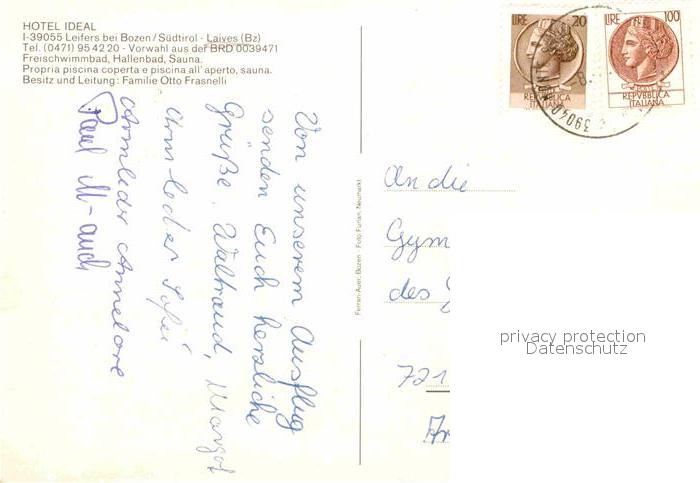 HOTEL IDEAL
I-39055 Leifers bei Bozen / Südtirol - Laives (Bz)
Tel. (0471) 95 42 20 - Vorwahl aus der BRD 0039471
Freischwimmbad, Hallenbad, Sauna.
Propria piscina coperta e piscina all'aperto, sauna.
Besitz und Leitung: Familie Otto Frasnelli
LIRE 20
REPVBBLICA
ITALIANA
LIRE 100
REPVBBLICA
ITALIANA
39040
Von unserem Ausflug
senden Euch herzliche
Grüße. Waltraud, Margot
Annelore
Paul
Foto Furlan, Neumarkt
An die
Gym
des
721
privacy protection
Datenschutz